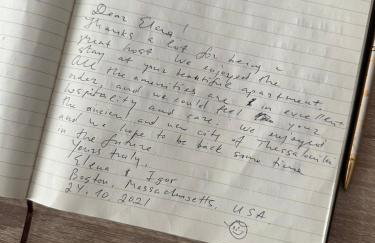 Dear Elena!
Thanks a lot for being a
great host. We enjoyed the
stay at your beautiful apartment
All the amenities are in excellent
order and we could feel your
hospitality and care. We enjoyed
the ancient and new city of Thessaloniki
and we hope to be back some time
in the future
Yours truly,
Elena & Igor
Boston, Massachusetts, USA
24.10.2021